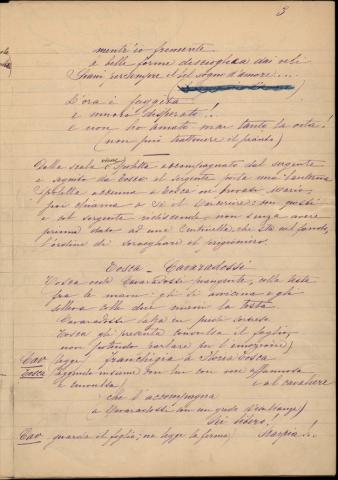 3
mentr'io fremente
e belle forme disciogliea dai veli
Svanì per sempre il bel sogno d'amore....
L'ora è fuggita
e muoio disperato!..
e non ho amato mai tanto la vita!
(non può trattenere il pianto)
Dalla scala viene Spoletta accompagnato dal sergente
e seguito da Tosca il sergente porta una lanterna
Spoletta accenna a Tosca ove trovasi Mario,
poi chiama a sè il Carceriere: con questi
e col sergente ridiscende, non senza avere
prima dato ad una sentinella, che sta nel fondo,
l'ordine di sorvegliare il prigioniero.
Tosca - Cavaradossi
Tosca vede Cavaradossi piangente, colla testa
fra le mani: gli si avvicina e gli
solleva colle due mani la testa
Cavaradossi balza in piedi sorpreso
Tosca gli presenta convulsa il foglio,
non potendo parlare per l'emozione)
Cav legge Franchigia a Floria Tosca
Tosca leggendo insieme con lui con voce affannosa
e convulsa) e al cavaliere
che l'accompagna
a Cavaradossi con un grido d'esultanza)
Sei libero!
Cav guarda il foglio; ne legge la firma) Scarpia!..